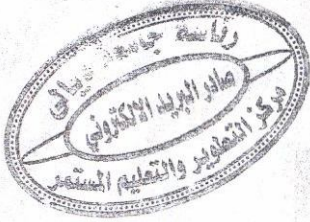 رئاسة جامعة ديالى
صادر البريد الالكتروني
مركز التطوير والتعليم المستمر